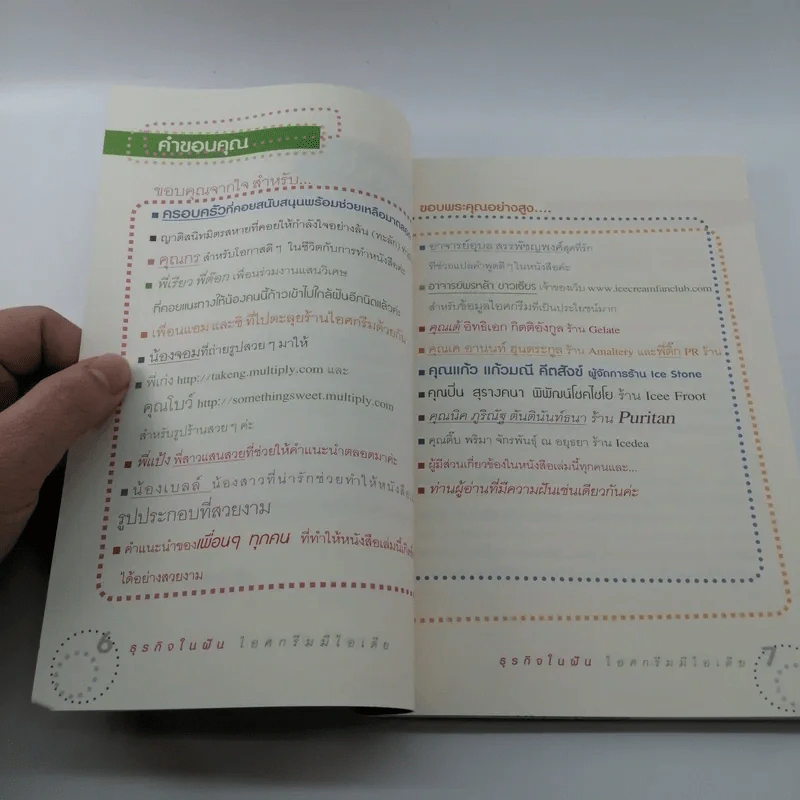 คำขอบคุณ
ขอบคุณจากใจ สำหรับ...
ครอบครัวที่คอยสนับสนุนพร้อมช่วยเหลือมาตลอด
ญาติสนิทมิตรสหายที่คอยให้กำลังใจอย่างล้น (ทะลัก)
คุณกร สำหรับโอกาสดีๆ ในชีวิตกับการทำหนังสือค่ะ
พี่เรียว พี่ต๊อก เพื่อนร่วมงานแสนวิเศษ
ที่คอยแนะทางให้น้องคนนี้ก้าวเข้าไปใกล้ฝันอีกนิดแล้วค่ะ
เพื่อนแอม และซี ที่ไปตะลุยร้านไอศกรีมด้วยกัน
น้องจอมที่ถ่ายรูปสวยๆ มาให้
พี่เก่ง http://takeng.multiply.com และ
คุณโบว์ http://somethingsweet.multiply.com
สำหรับรูปร้านสวยๆ ค่ะ
พี่แป้ง พี่สาวแสนสวยที่ช่วยให้คำแนะนำตลอดมาค่ะ
น้องเบลล์ น้องสาวที่น่ารักช่วยทำให้หนังสือ
รูปประกอบที่สวยงาม
คำแนะนำของเพื่อนๆ ทุกคน ที่ทำให้หนังสือเล่มนี้
ได้อย่างสวยงาม
6 ธุรกิจในฝัน ไอศกรีมมีไอเดีย
ขอบพระคุณอย่างสูง....
อาจารย์อุบล สรรพัชญพงศ์สุดที่รัก
ที่ช่วยแปลคำพูดดีๆ ในหนังสือค่ะ
อาจารย์พรหล้า ขาวเธียร เจ้าของเว็บ www.icecreamfanclub.com
สำหรับข้อมูลไอศกรีมที่เป็นประโยชน์มาก
คุณเต้ อิทธิเอก กิตติอังกูล ร้าน Gelate
คุณเค อานนท์ ฮุนตระกูล ร้าน Amaltery และพี่ติ๊ก PR ร้าน
คุณแก้ว แก้วมณี คีตสังข์ ผู้จัดการร้าน Ice Stone
คุณปุ่น สุรางคนา พิพัฒน์โชคไชโย ร้าน Icee Froot
คุณนิค ภูริณัฐ ตันตินันท์ธนา ร้าน Puritan
คุณติ๊บ พริมา จักรพันธุ์ ณ อยุธยา ร้าน Icedea
ผู้มีส่วนเกี่ยวข้องในหนังสือเล่มนี้ทุกคนและ...
ท่านผู้อ่านที่มีความฝันเช่นเดียวกันค่ะ
ธุรกิจในฝัน ไอศกรีมมีไอเดีย 7